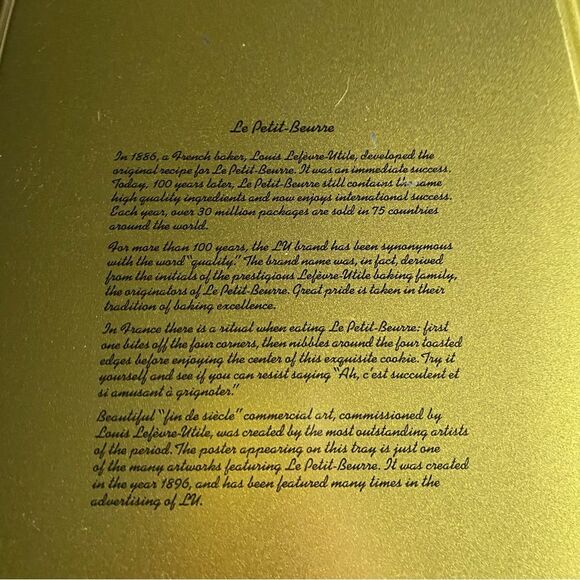 Le Petit-Beurre
In 1886, a French baker, Louis Lefèvre-Utile, developed the
original recipe for Le Petit-Beurre. It was an immediate success.
Today, 100 years later, Le Petit-Beurre still contains the same
high quality ingredients and now enjoys international success.
Each year, over 30 million packages are sold in 75 countries
around the world.
For more than 100 years, the LU brand has been synonymous
with the word "quality." The brand name was, in fact, derived
from the initials of the prestigious Lefèvre-Utile baking family,
the originators of Le Petit-Beurre. Great pride is taken in their
tradition of baking excellence.
In France there is a ritual when eating Le Petit-Beurre: first
one bites off the four corners, then nibbles around the four toasted
edges before enjoying the center of this exquisite cookie. Try it
yourself and see if you can resist saying "Ah, c'est succulent et
si amusant à grignoter."
Beautiful "fin de siècle" commercial art, commissioned by
Louis Lefèvre-Utile, was created by the most outstanding artists
of the period. The poster appearing on this tray is just one
of the many artworks featuring Le Petit-Beurre. It was created
in the year 1896, and has been featured many times in the
advertising of LU.